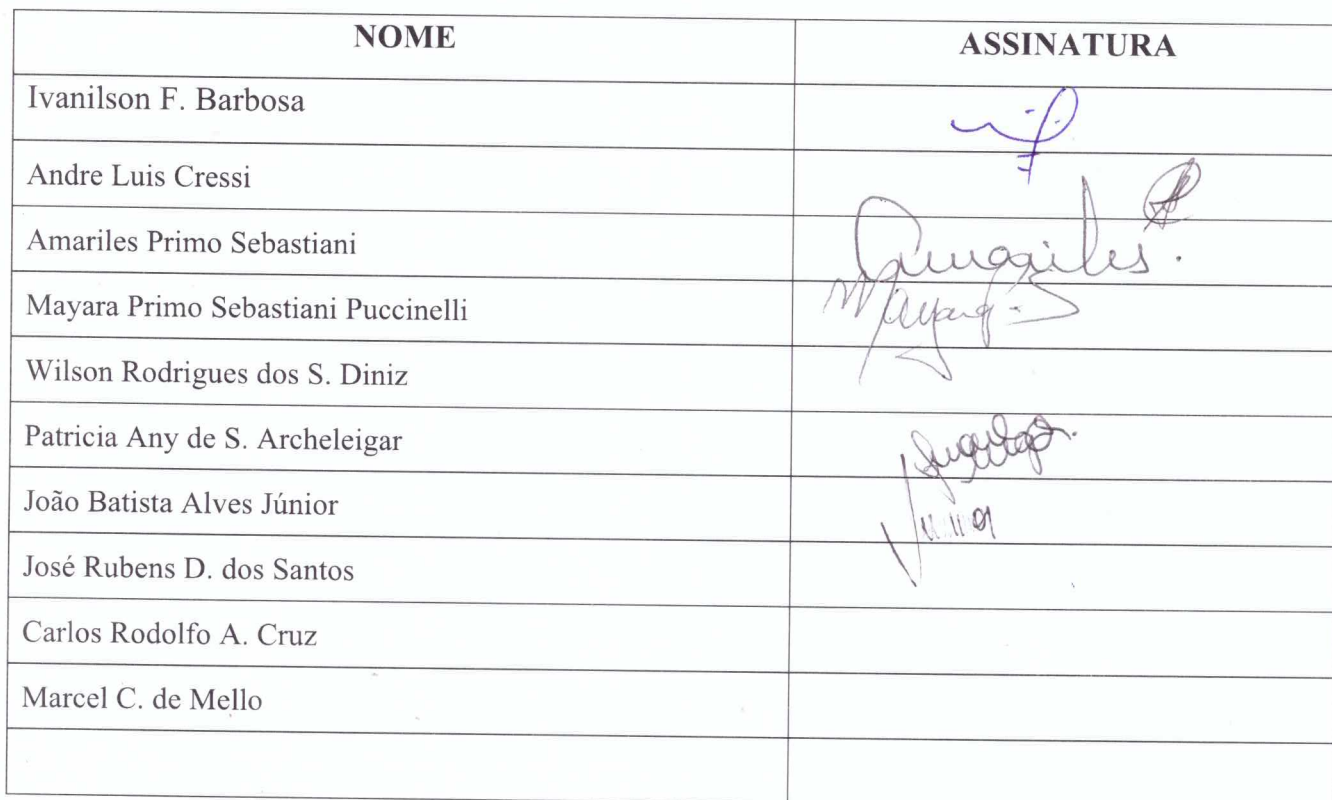 NOME ASSINATURA
Ivanilson F. Barbosa
Andre Luis Cressi
Amariles Primo Sebastiani Amariles.
Mayara Primo Sebastiani Puccinelli Mayara
Wilson Rodrigues dos S. Diniz
Patricia Any de S. Archeleigar
João Batista Alves Júnior Junior
José Rubens D. dos Santos
Carlos Rodolfo A. Cruz
Marcel C. de Mello